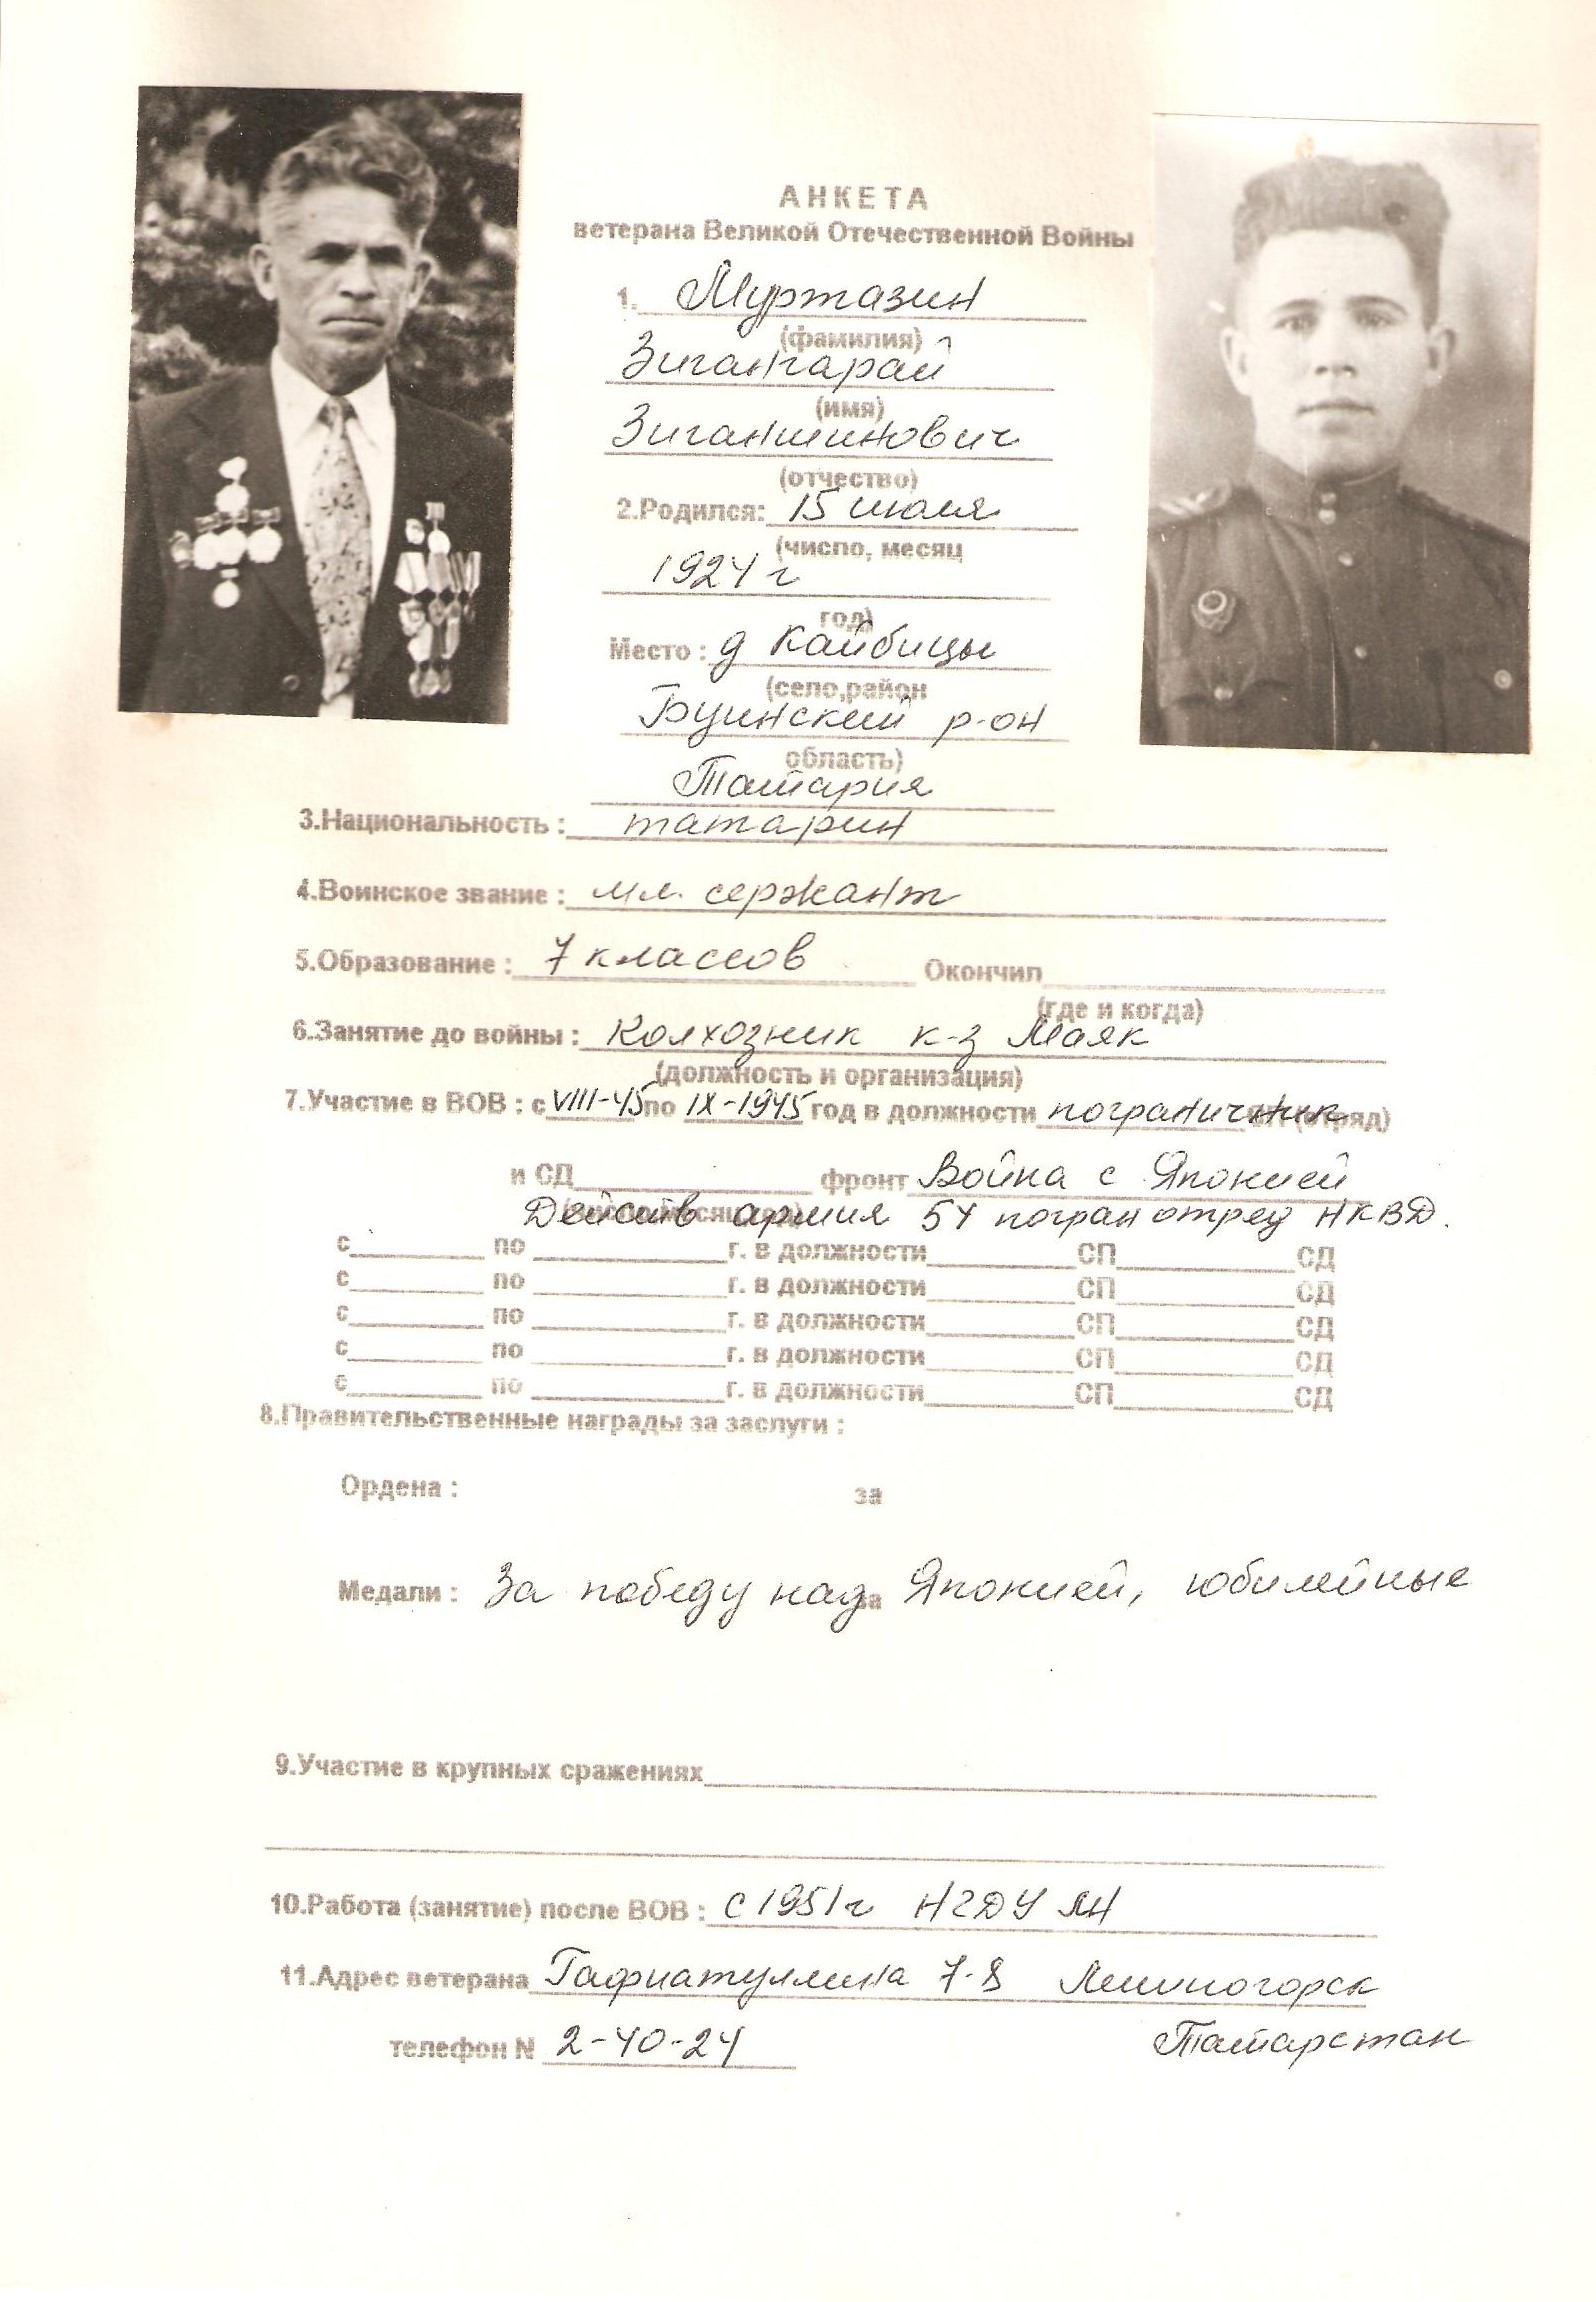 АНКЕТА
ветерана Великой Отечественной Войны
1. Муртазин
(фамилия)
Зигангарай
(имя)
Зиганшинович
(отчество)
2.Родился: 15 июля
(число, месяц
1924 г
год)
Место : д Кайбицы
(село,район
Буинский р-он
область)
Татария
3.Национальность : татарин
4.Воинское звание : мл. сержант
5.Образование : 7 классов Окончил
(где и когда)
6.Занятие до войны : Колхозник к-з Маяк
(должность и организация)
7.Участие в ВОВ : с VIII-45 по IX-1945 год в должности пограничник (отряд)
и СД фронт Война с Японией
Действ армия 54 погран отряд НКВД.
с по г. в должности СП СД
с по г. в должности СП СД
с по г. в должности СП СД
с по г. в должности СП СД
с по г. в должности СП СД
8.Правительственные награды за заслуги :
Ордена : за
Медали : За победу над за Японией, юбилейные
9.Участие в крупных сражениях
10.Работа (занятие) после ВОВ : с 1951 г НГДУ ЛН
11.Адрес ветерана Гафиатуллина 7-8 Лениногорск
телефон N 2-40-24 Татарстан